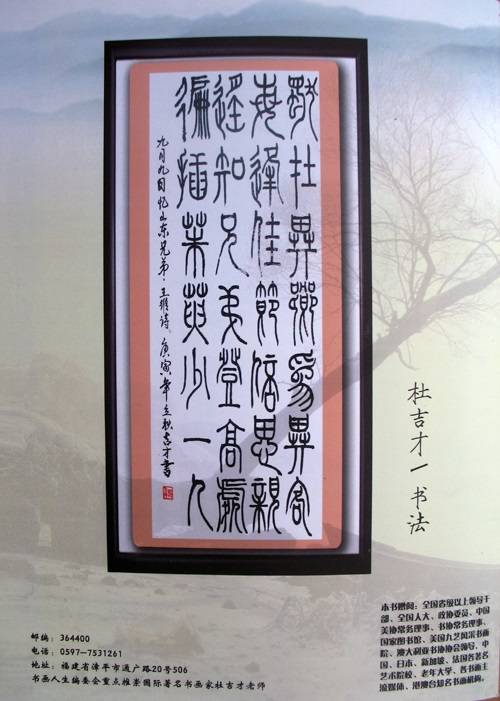 獨在異鄉為異客
每逢佳節倍思親
遙知兄弟登高處
徧插茱萸少一人
九月九日忆山东兄弟·王維诗。庚寅年立秋吉才書
杜吉才/书法
本书赠阅：全国省级以上领导干
部、全国人大、政协委员、中国
美协常务理事、书协常务理事、
国家图书馆、美国九艺风采书画
院、澳大利亚书协协会领导、中
国、日本、新加坡、法国各著名
艺术院校、老年大学、各书画主
流媒体、港澳台知名书画机构。
邮编：364400
电话：0597-7531261
地址：福建省漳平市通广路20号506
书画人生编委会重点推崇国际著名书画家杜吉才老师